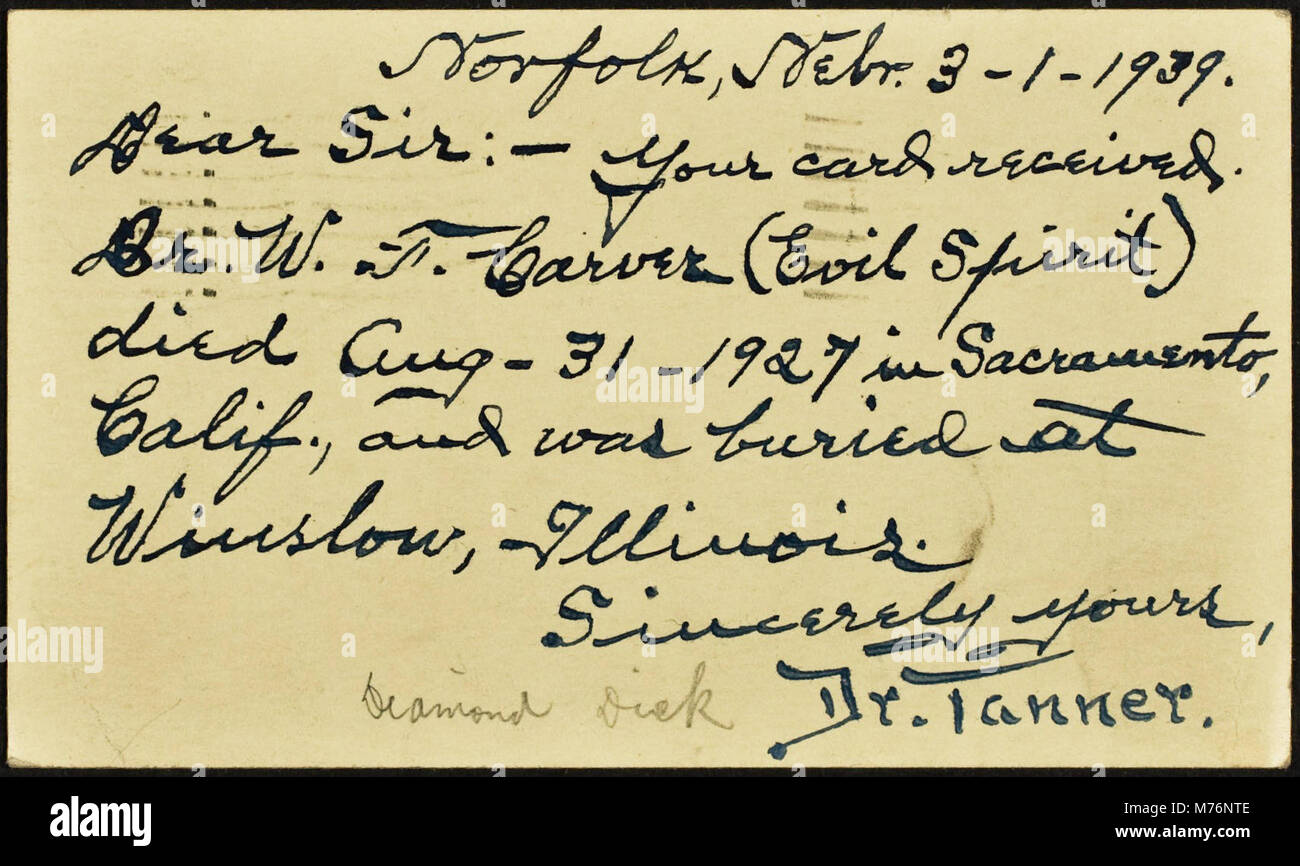 Norfolk, Nebr. 3-1-1939.
Dear Sir:- Your card received.
Dr. W. F. Carver (Evil Spirit)
died Aug-31-1927 in Sacramento,
Calif., and was buried at
Winslow, Illinois.
Sincerely yours,
Dr. Tanner.
Diamond Dick
alamy
Image ID: M76NTE
www.alamy.com